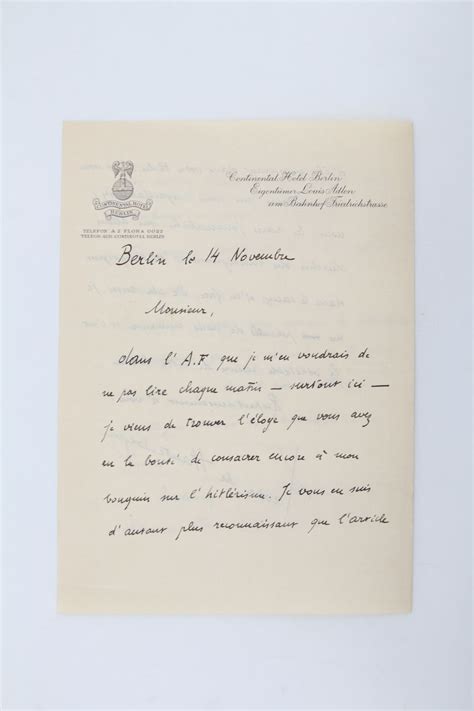 CONTINENTAL HOTEL
BERLIN
TELEFON A 2 FLORA 0027
Continental Hotel Berlin
Eigentümer Louis Adlon
am Bahnhof Friedrichstrasse
Berlin le 14 Novembre
Monsieur,
dans l'A.F que je m'en voudrais de
ne pas lire chaque matin — surtout ici —
je viens de trouver l'éloge que vous avez
eu la bonté de consacrer encore à mon
bouquin sur l'hitlérisme. Je vous en suis
d'autant plus reconnaissant que l'article